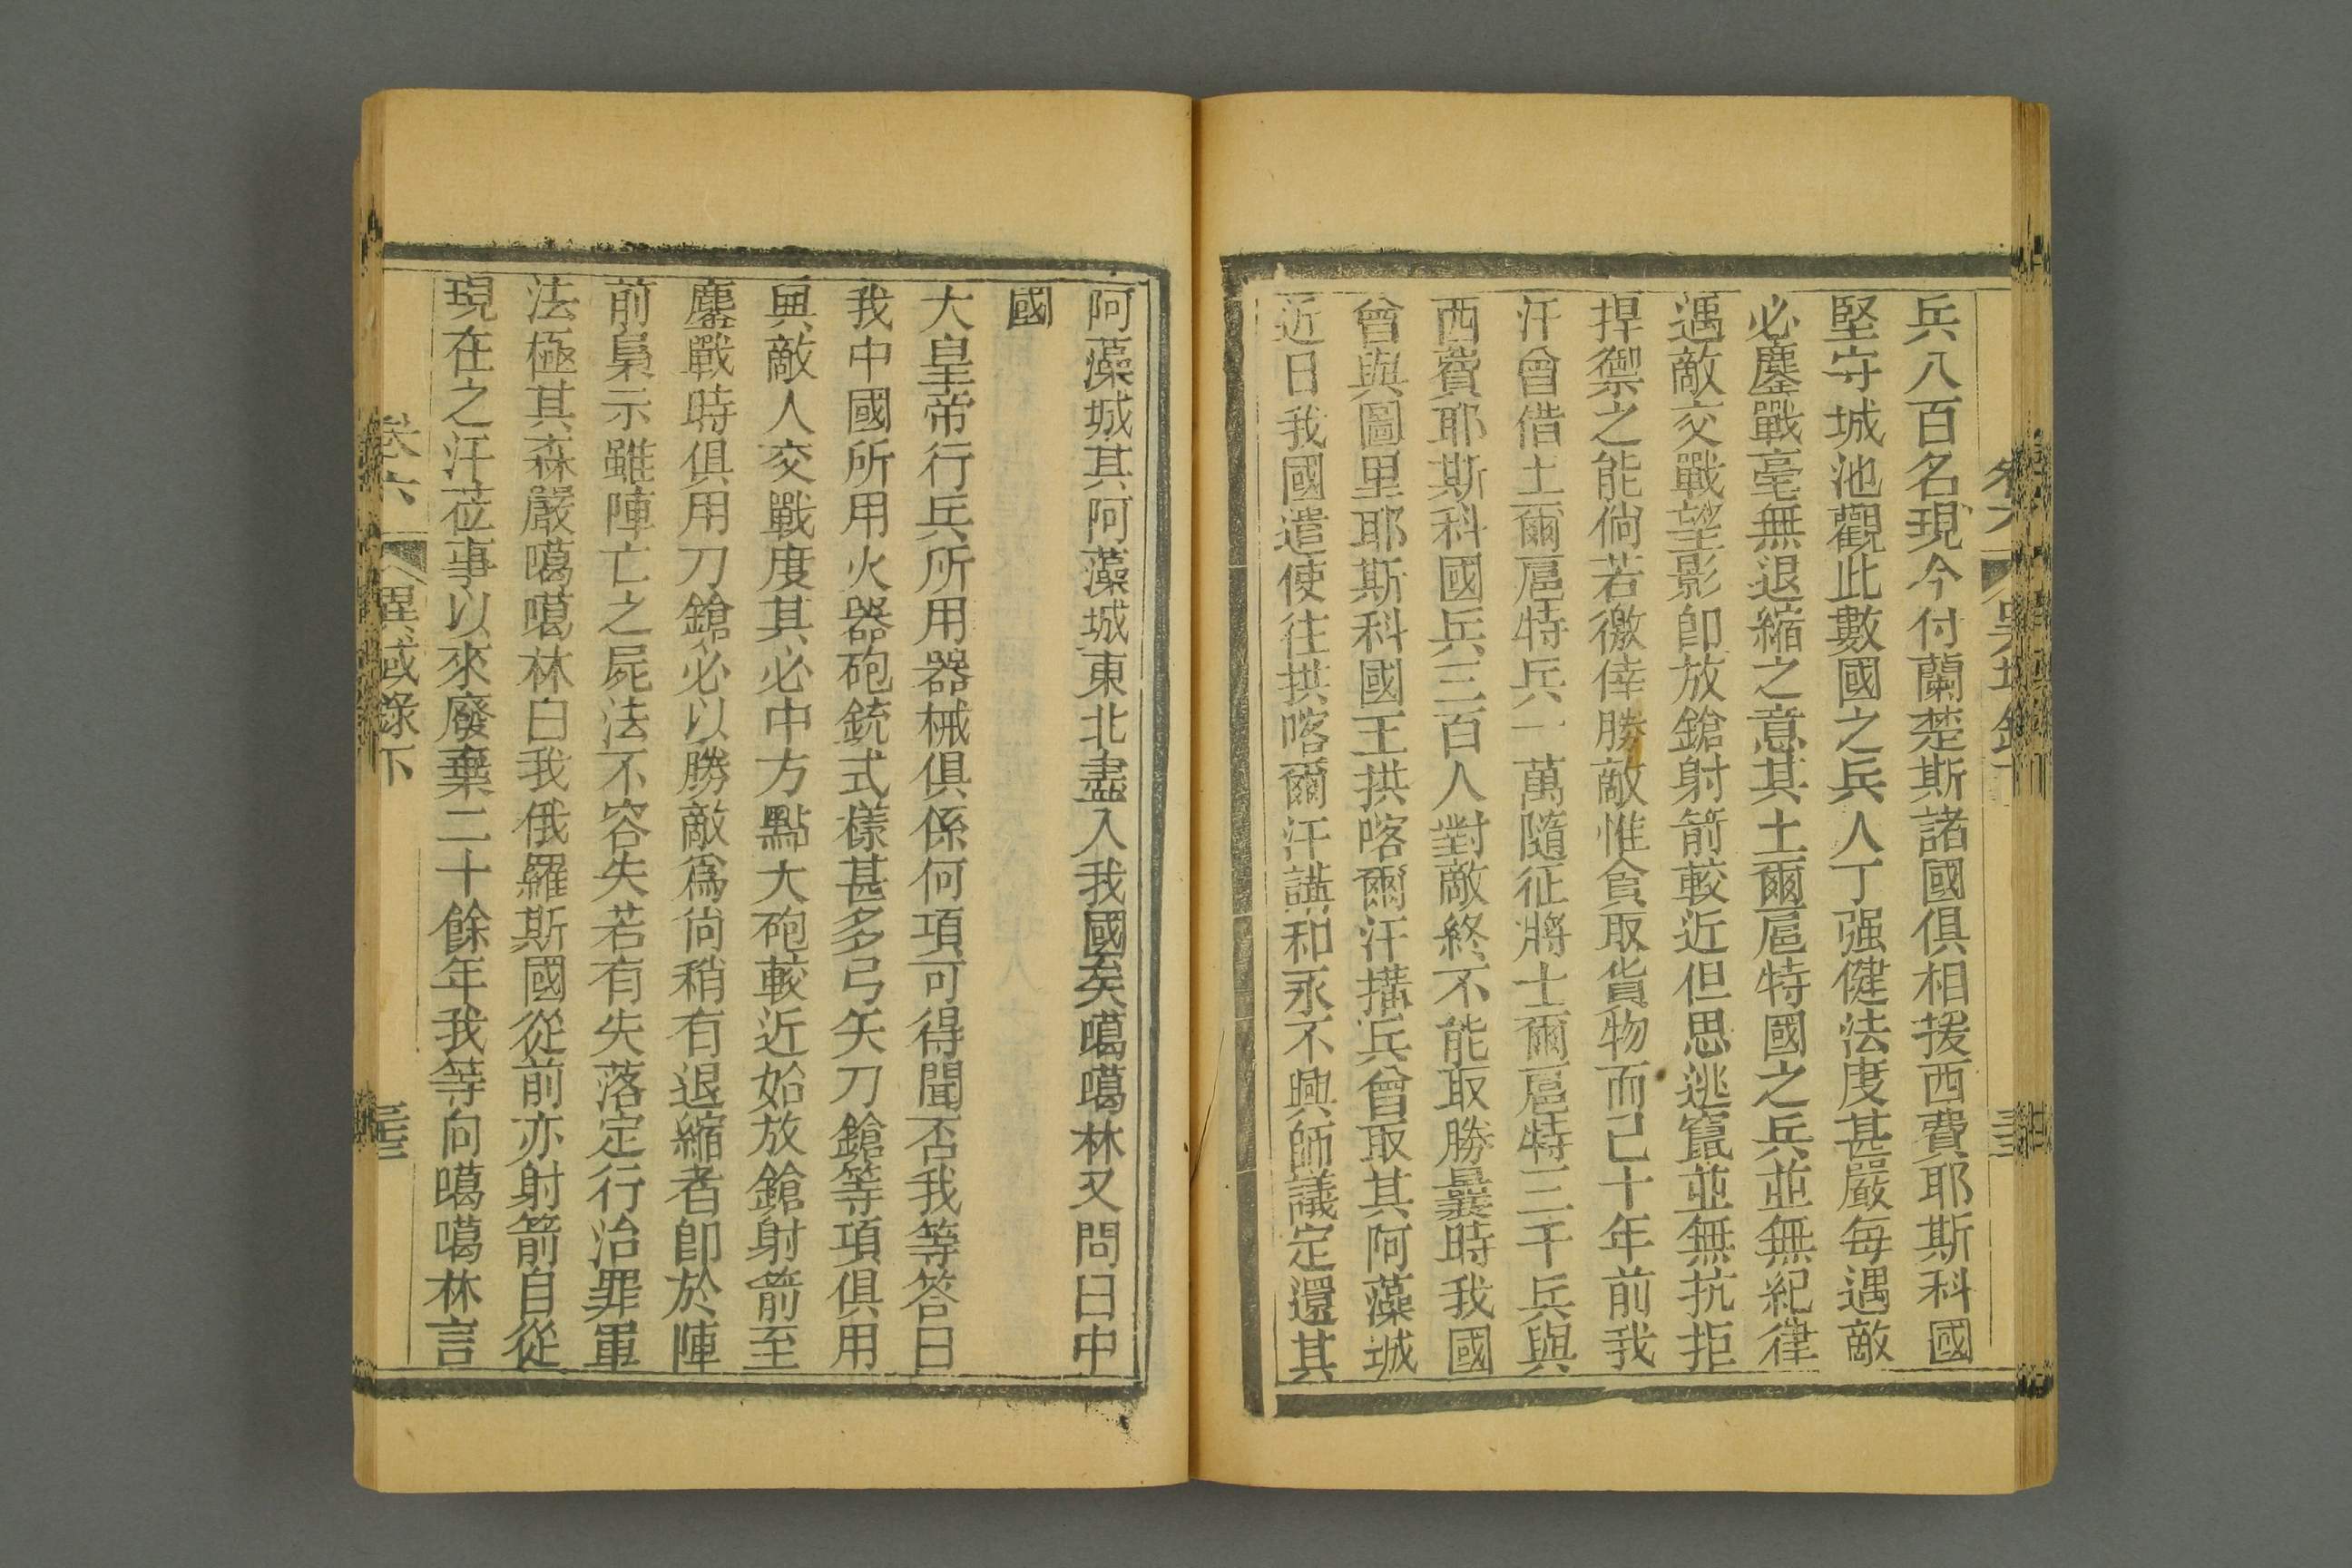 兵八百名現今付蘭楚斯諸國俱相援西費耶斯科國
堅守城池觀此數國之兵人丁强健法度甚嚴每遇敵
必鏖戰毫無退縮之意其土爾扈特國之兵並無紀律
遇敵交戰望影卽放鎗射箭較近但思逃竄並無抗拒
捍禦之能倘若徼倖勝敵惟貪取貨物而已十年前我
汗曾借土爾扈特兵一萬隨征將土爾扈特三千兵與
西費耶斯科國兵三百人對敵終不能取勝曩時我國
曾與圖里耶斯科國王拱喀爾汗搆兵曾取其阿藻城
近日我國遣使往拱喀爾汗講和永不興師議定還其
阿藻城其阿藻城東北盡入我國矣噶噶林又問曰中
國
大皇帝行兵所用器械俱係何項可得聞否我等答曰
我中國所用火器砲銃式樣甚多弓矢刀鎗等項俱用
與敵人交戰度其必中方點大砲較近始放鎗射箭至
鏖戰時俱用刀鎗必以勝敵爲尙稍有退縮者卽於陣
前梟示雖陣亡之屍法不容失若有失落定行治罪軍
法極其森嚴噶噶林曰我俄羅斯國從前亦射箭自從
現在之汗莅事以來廢棄二十餘年我等向噶噶林言
卷六
異域錄下